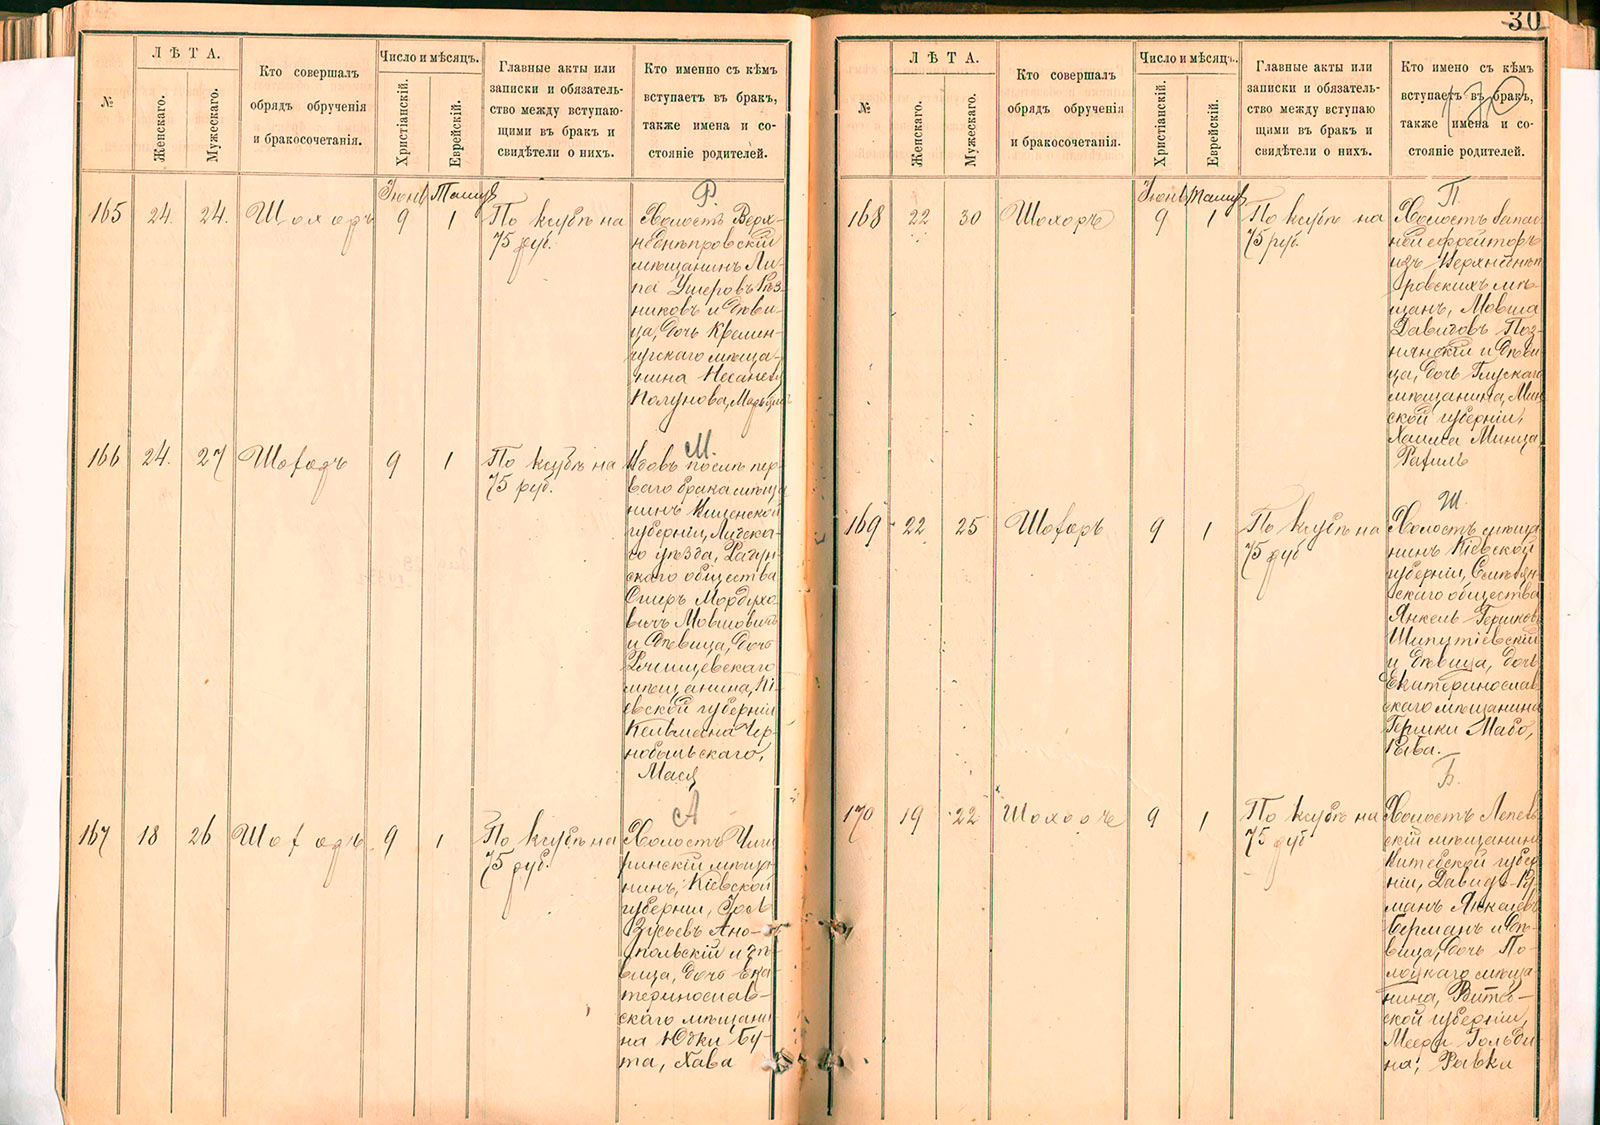 30
130
№
ЛѢТА.
Женскаго.
Мужескаго.
Кто совершалъ
обрядъ обрученія
и бракосочетанія.
Число и мѣсяцъ.
Христіанскій.
Еврейскій.
Главные акты или
записки и обязатель-
ство между вступаю-
щими въ бракъ и
свидѣтели о нихъ.
Кто именно съ кѣмъ
вступаетъ въ бракъ,
также имена и со-
стояніе родителей.
Іюнь
165
24.
24.
Шохоръ
9
1
По ктубѣ на
75 руб.
Р.
Холостъ Верх-
неднѣпровскій
мѣщанинъ Ли-
па Ушеровъ Рѣз-
никовъ и дѣви-
ца, дочь Кремен-
чугскаго мѣща-
нина
166
24.
27
9
1
По ктубѣ на
75 руб.
М.
Вдовъ послѣ пер-
ваго брака мѣща
нинъ
губерніи,
го уѣзда,
скаго общества
Мордухо
вичъ Мовшовичъ
и дѣвица, дочь
мѣщанина, Кі-
евской губерніи
Кельмана Чер-
нобыльскаго,
Мася
167
18
26
9
1
По ктубѣ на
75 руб.
А
Холостъ Чиги
ринскій мѣща-
нинъ, Кіевской
губерніи,
Зусьевъ Ано-
польскій и дѣ-
вица, дочь Ека-
теринослав-
скаго мѣщани-
на Юдки Бу-
та, Хава
№
ЛѢТА.
Женскаго.
Мужескаго.
Кто совершалъ
обрядъ обрученія
и бракосочетанія.
Число и мѣсяцъ.
Христіанскій.
Еврейскій.
Главные акты или
записки и обязатель-
ство между вступаю
щими въ бракъ и
свидѣтели о нихъ.
Кто имено съ кѣмъ
вступаетъ въ бракъ,
также имена и со-
стояніе родителей.
Іюнь
168
22
30
Шохоръ
9
1
По ктубѣ на
75 руб.
П.
Холостъ запас
ной ефрейторъ
изъ Верхнеднѣп
ровскихъ мѣ-
щанъ, Мовша
Давидовъ Поз-
нянскій и дѣви
ца, дочь Глускаго
мѣщанина, Мин
ской губерніи,
Хаима Минца
Рахиль
169
22
25
Шохоръ
9
1
По ктубѣ на
75 руб
Ш.
Холостъ мѣща
нинъ Кіевской
губерніи,
скаго общества
Янкель Гершковъ
Шипутіевскій
и дѣвица, дочь
Екатеринослав
скаго мѣщанина
Гершки Мабо,
170
19
22
Шохоръ
9
1
По ктубѣ на
75 руб
Б.
Холостъ Лепель
скій мѣщанинъ
Витебской губер
ніи, Давидъ-Ру
манъ Янкелевъ
Берманъ и дѣ-
вица, дочь По-
лоцкаго мѣща
нина, Витеб-
ской губерніи,
Меера Гольди-
на, Ривка